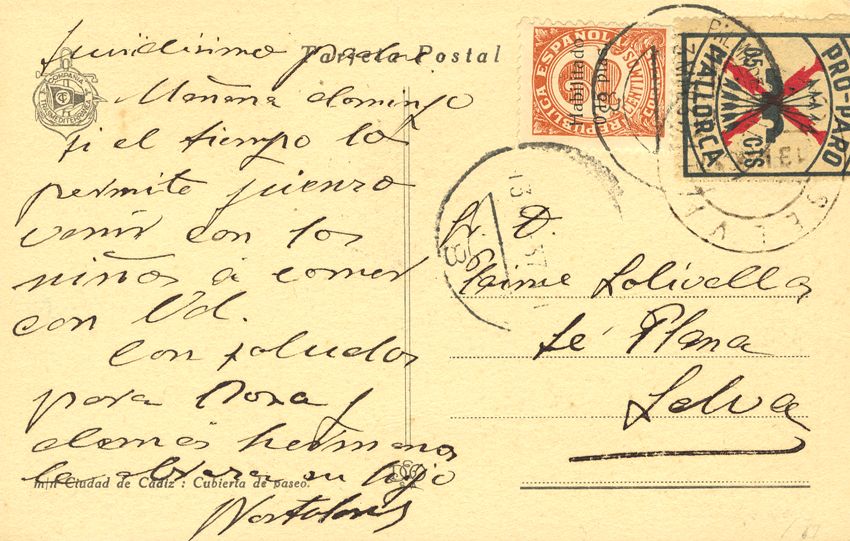 Tarjeta Postal
COMPAÑIA
TRASMEDITERRANEA
padre
Mañana domingo
si el tiempo lo
permite pienso
venir con los
niños a comer
con Vd.
Con saludos
para Rosa y
demás hermanos
le abraza su hijo
m/n Ciudad de Cádiz : Cubierta de paseo.
REPUBLICA ESPAÑOLA
CENTIMOS
Habilitado
0'05 ptas.
PRO-PARO
MALLORCA
05
CTS
SELVA
13
37
Sr. D.
Jaime Solivellas
Sé Plana
Selva